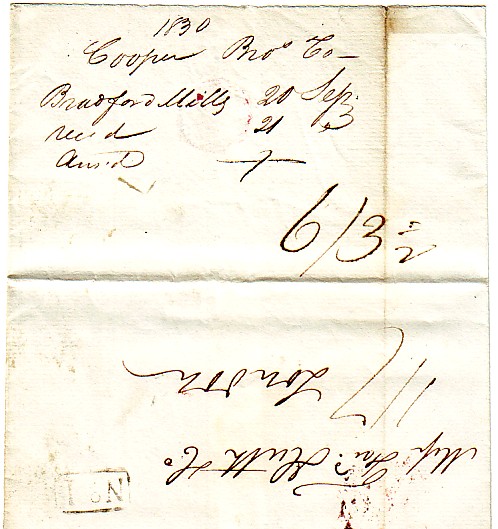 1830
Cooper Bros Co
Bradford Mills 20 Sep.
recd 21 "
Ansd
6/3½
Messrs Fred. Huth & Co.
London
1/7